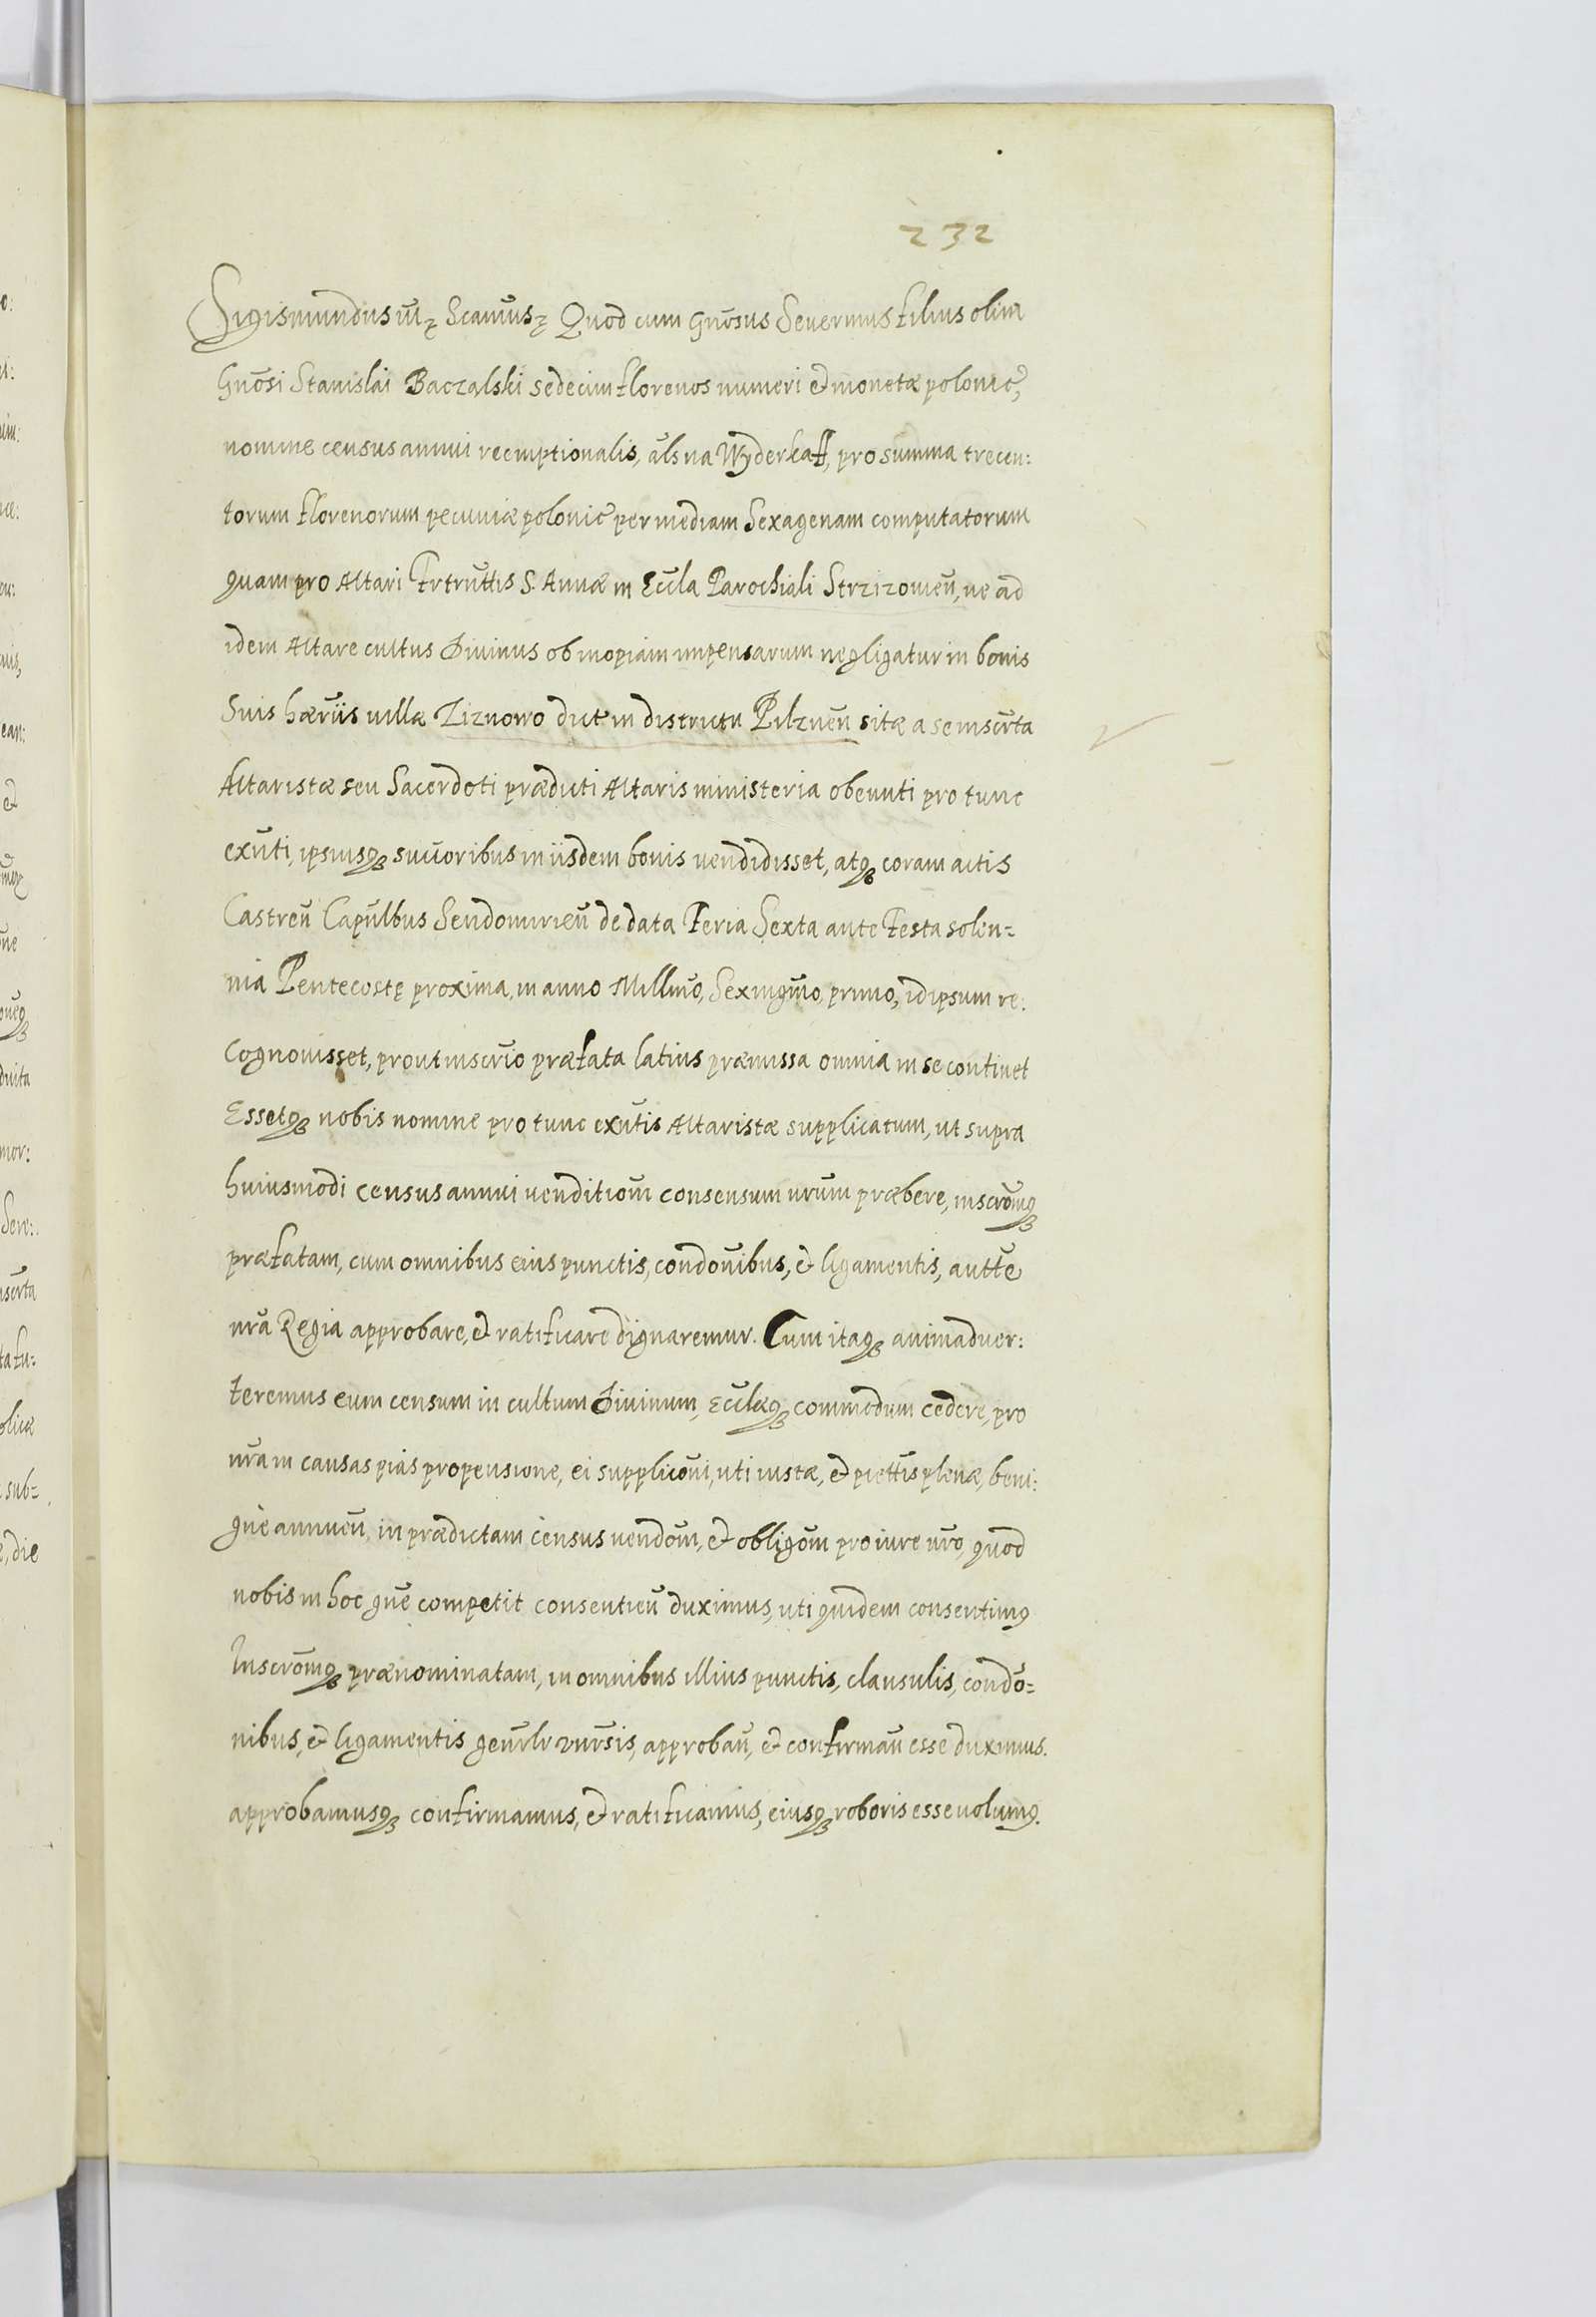 232
Sigismundus iii̅ꝫ Scamūsꝫ Quod cum Gnōsus Seuerinus filius olim
Gnōsi Stanislai Baczalski sedecim florenos numeri et monetæ polonicę,
nomine census annui reemptionalis, āls na Wyderkaff, pro summa trecen:
torum florenorum pecuniæ polonicę per mediam Sexagenam computatorum
quam pro Altari S. Annæ in Eccl̄a Parochiali Strzizouieñ, ne ad
idem Altare cultus diuinus ob inopiam impensarum negligatur in bonis
Suis hær̄iis uillæ Liznowo dict in districtu Pilzneñ sitæ a se inscr̄ta
Altaristæ seu Sacerdoti prædicti Altaris ministeria obeunti pro tunc
exūti, ipsiusqꝫ succ̄oribus in iisdem bonis uendidisset, atqꝫ coram actis
Castreñ Capūlbus Sendomirieñ de data Feria Sexta ante Festa solen=
nia Pentecostę proxima, in anno Millmō, Sexingmō, primo, id ipsum re:
cognouisset, prout inscrīo præfata latius præmissa omnia in se continet
Essetqꝫ nobis nomine pro tunc exūtis Altaristæ supplicatum, ut supra
huiusmodi census annui uenditiom̄ consensum nr̄um præbere, inscrōmqꝫ
præfatam, cum omnibus eius punctis, condoñibus, et ligamentis, autt̄e
nr̄a Regia approbare, et ratificare dignaremur. Cum itaqꝫ animaduer:
teremus eum censum in cultum diuinum, Eccl̄æqꝫ commodum cedere, pro
nr̄a in causas pias propensione, ei supplicōni, uti iustæ, et piett̄is plenæ, beni:
gnè annueñ, in prædictam census uendōm, et obligōm pro iure nr̄o, quod
nobis in hoc gñe competit consentieñ duximus, uti quidem consentimꝰ
Inscrōmqꝫ prænominatam, in omnibus illius punctis, clausulis, condō=
nibus, et ligamentis geñrlr vnr̄sis, approbañ, et confirmañ esse duximus.
approbamusqꝫ confirmamus, et ratificamus, eiusqꝫ roboris esse uolumꝰ.